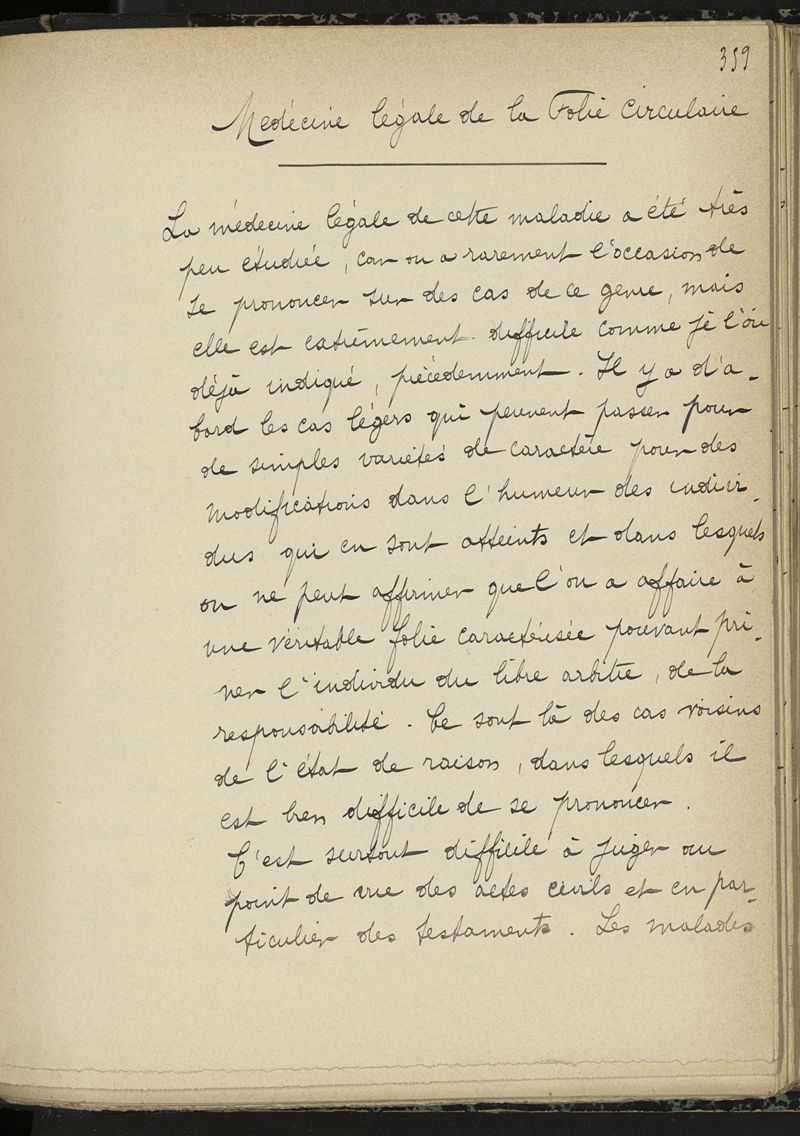 359
Medécine légale de la Folie Circulaire
La médecine légale de cette maladie a été très
peu étudiée, car on a rarement l'occasion de
se prononcer sur des cas de ce genre, mais
elle est extrêmement difficile comme je l'ai
déjà indiqué, précédemment. Il y a d'a-
bord les cas légers qui peuvent passer pour
de simples variétés de caractère pour des
modifications dans l'humeur des indivi-
dus qui en sont atteints et dans lesquels
on ne peut affirmer que l'on a affaire à
une véritable folie caractérisée pouvant pri-
ver l'individu du libre arbitre, de la
responsabilité. Ce sont là des cas voisins
de l'état de raison, dans lesquels il
est bien difficile de se prononcer.
C'est surtout difficile à juger au
point de vue des actes civils et en par-
ticulier des testaments. Les malades